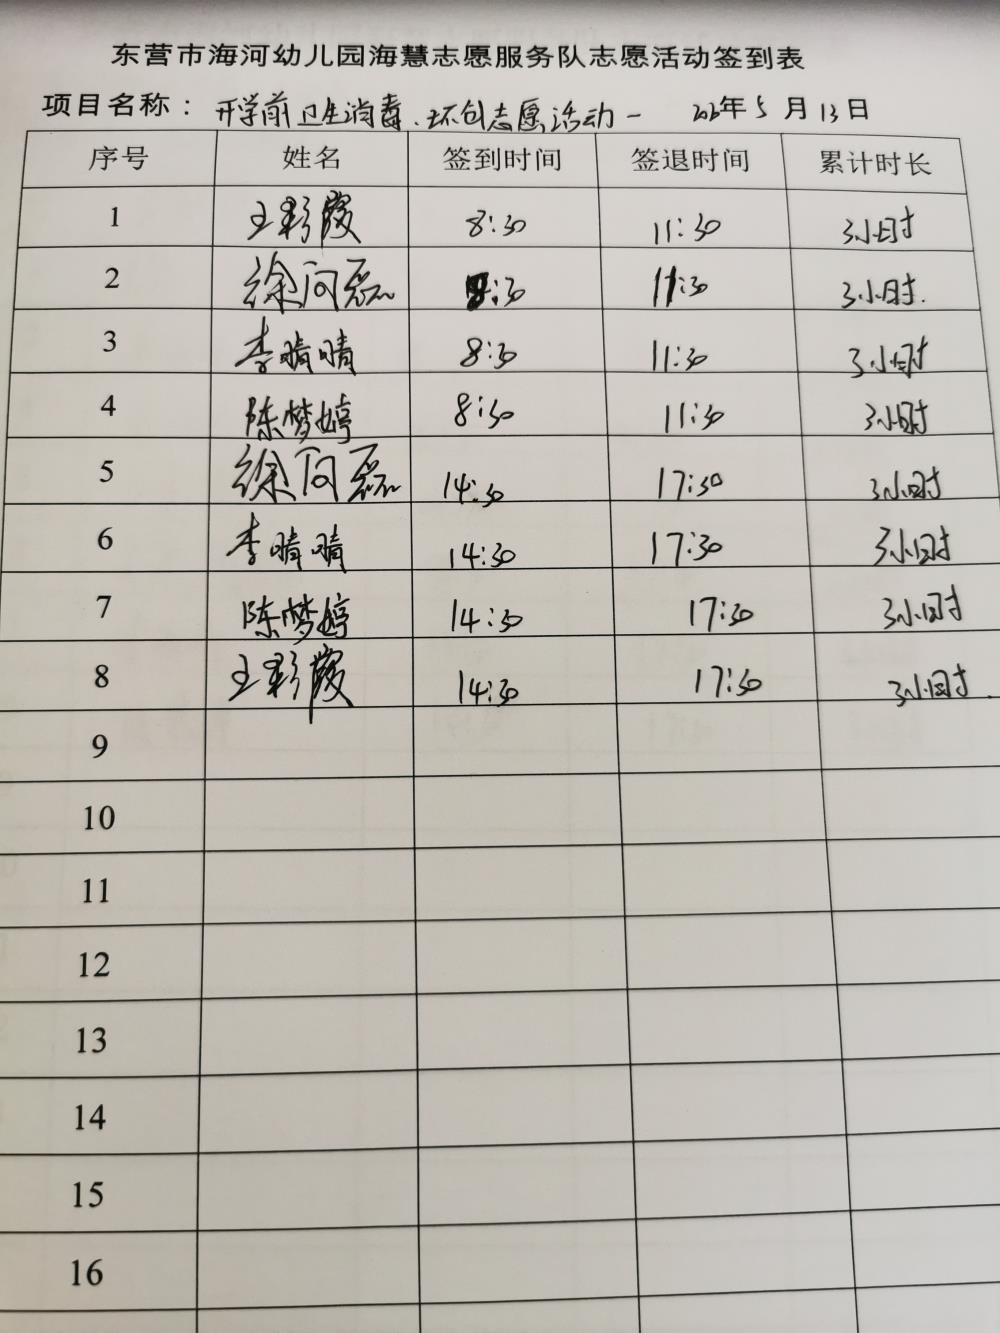 东营市海河幼儿园海慧志愿服务队志愿活动签到表
项目名称：开学前卫生消毒、环创志愿活动一 年5月13日
序号 姓名 签到时间 签退时间 累计时长
1 王彩霞 8:30 11:30 3小时
2 徐问磊 8:30 11:30 3小时.
3 李晴晴 8:30 11:30 3小时
4 陈梦婷 8:30 11:30 3小时
5 徐问磊 14:30 17:30 3小时
6 李晴晴 14:30 17:30 3小时
7 陈梦婷 14:30 17:30 3小时
8 王彩霞 14:30 17:30 3小时.
9
10
11
12
13
14
15
16